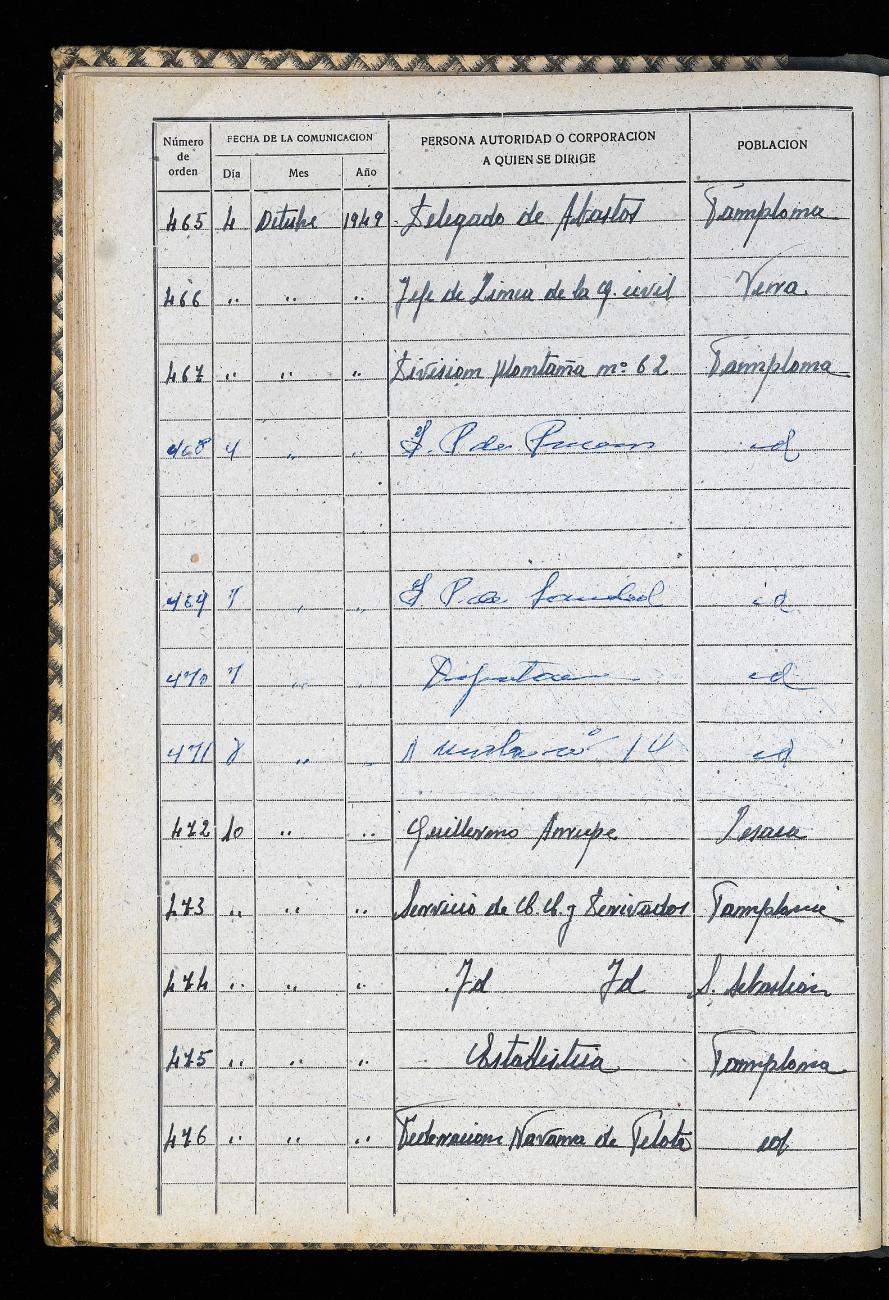 Número de orden FECHA DE LA COMUNICACION PERSONA AUTORIDAD O CORPORACION A QUIEN SE DIRIGE POBLACION
Día Mes Año
465 4 Octubre 1949 Delegado de Abastos Pamplona
466 " " " Jefe de Linea de la G. civil Vera
467 " " " Division Montaña nº 62 Pamplona
468 4 " " J. P. de id
469 7 " " J. P. de Sanidad id
470 7 " " Diputacion id
471 8 " " 14 id
472 10 " " Guillermo Arrupe Lesaca
473 " " " Servicio de y Derivados Pamplona
474 " " " Id Id S. Sebastian
475 " " " Estadistica Pamplona
476 " " " Federacion Navarra de Pelota id